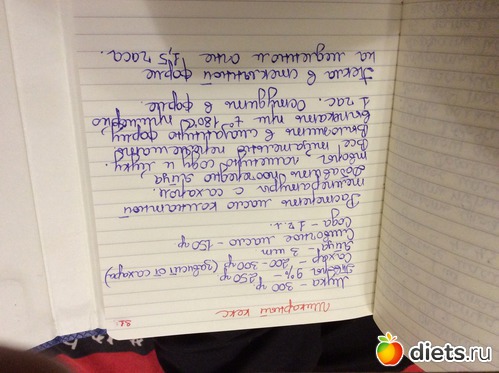 81.
Шикарный кекс
Мука - 300 гр
Творог 9% - 250 гр
Сахар - 200-300 гр (зависит от сахара)
Яйца 3 шт
Сливочное масло - 150 гр
Сода - 1 ч.л.
Растереть масло комнатной
температуры с сахаром.
Добавить поочередно яйца,
творог, гашеную соду и муку.
Все тщательно перемешать
Выложить в смазанную форму
Выпекать при t° 180С примерно
1 час. Остудить в форме.
Пекла в стеклянной форме
на медленном огне 1,5 часа.
diets.ru